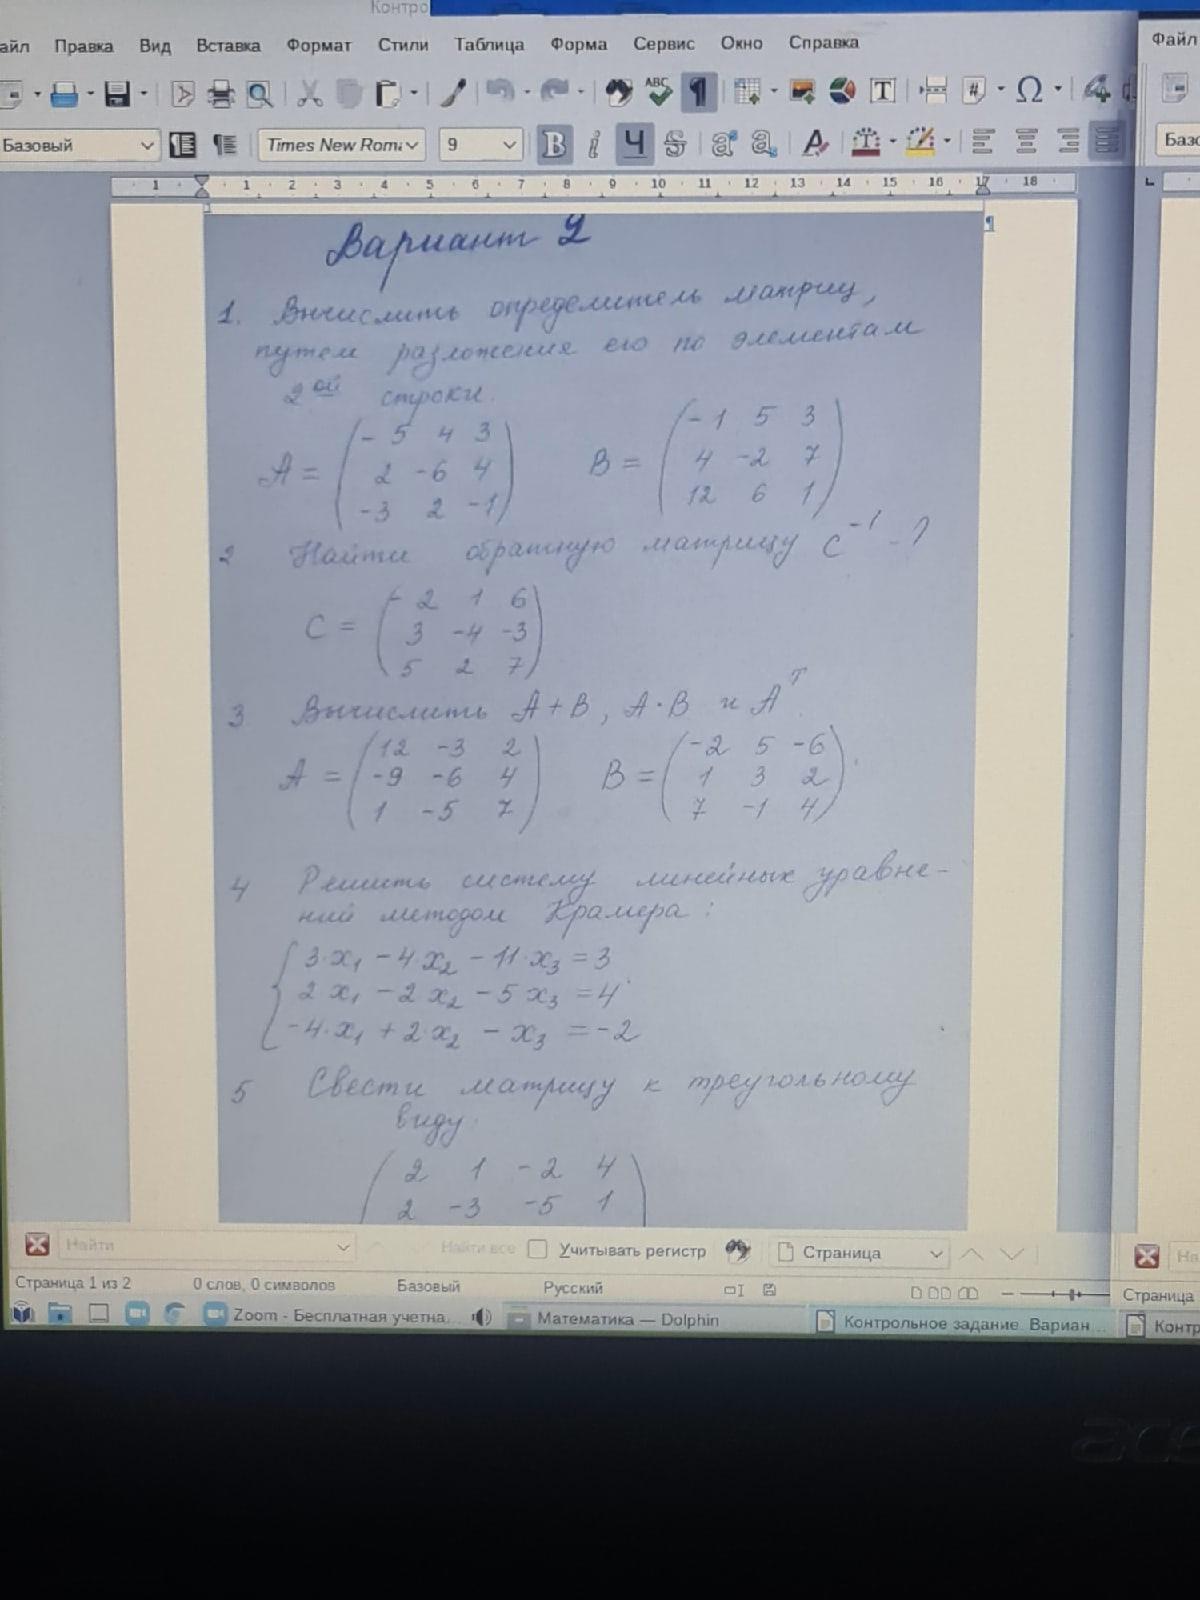 Контро
айл Правка Вид Вставка Формат Стили Таблица Форма Сервис Окно Справка
Файл
Базовый Times New Roma 9
1 1 2 3 4 5 6 7 8 9 10 11 12 13 14 15 16 17 18
Вариант 2
1. Вычислить определитель матриц,
путем разложения его по элементам
2ой строки.
A = (-5 4 3
2 -6 4
-3 2 -1)
B = (-1 5 3
4 -2 7
12 6 1)
2 Найти обратную матрицу C^-1 - ?
C = (-2 1 6
3 -4 -3
5 2 7)
3 Вычислить A+B, A·B и A^T.
A = (12 -3 2
-9 -6 4
1 -5 7)
B = (-2 5 -6
1 3 2
7 -1 4)
4 Решить систему линейных уравне-
ний методом Крамера:
3·x₁ - 4·x₂ - 11·x₃ = 3
2 x₁ - 2 x₂ - 5 x₃ = 4
-4·x₁ + 2·x₂ - x₃ = -2
5 Свести матрицу к треугольному
виду:
2 1 -2 4
2 -3 -5 1
Найти Найти все Учитывать регистр Страница
Страница 1 из 2 0 слов, 0 символов Базовый Русский
Страница
Zoom - Бесплатная учетна... Математика — Dolphin Контрольное задание. Вариан... Контр
ace